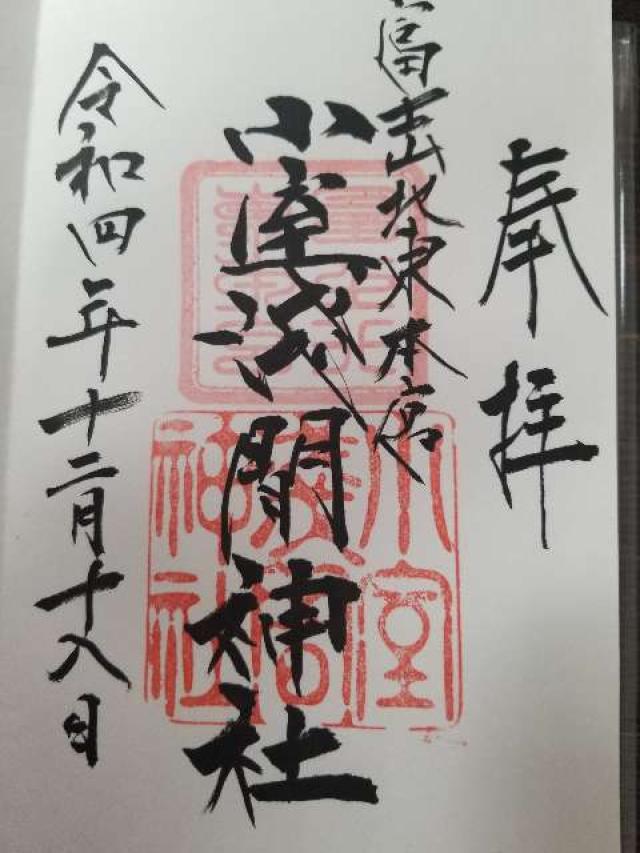 奉拝
富士山北東本宮
小室浅間神社
令和四年十二月十八日
小室
神社